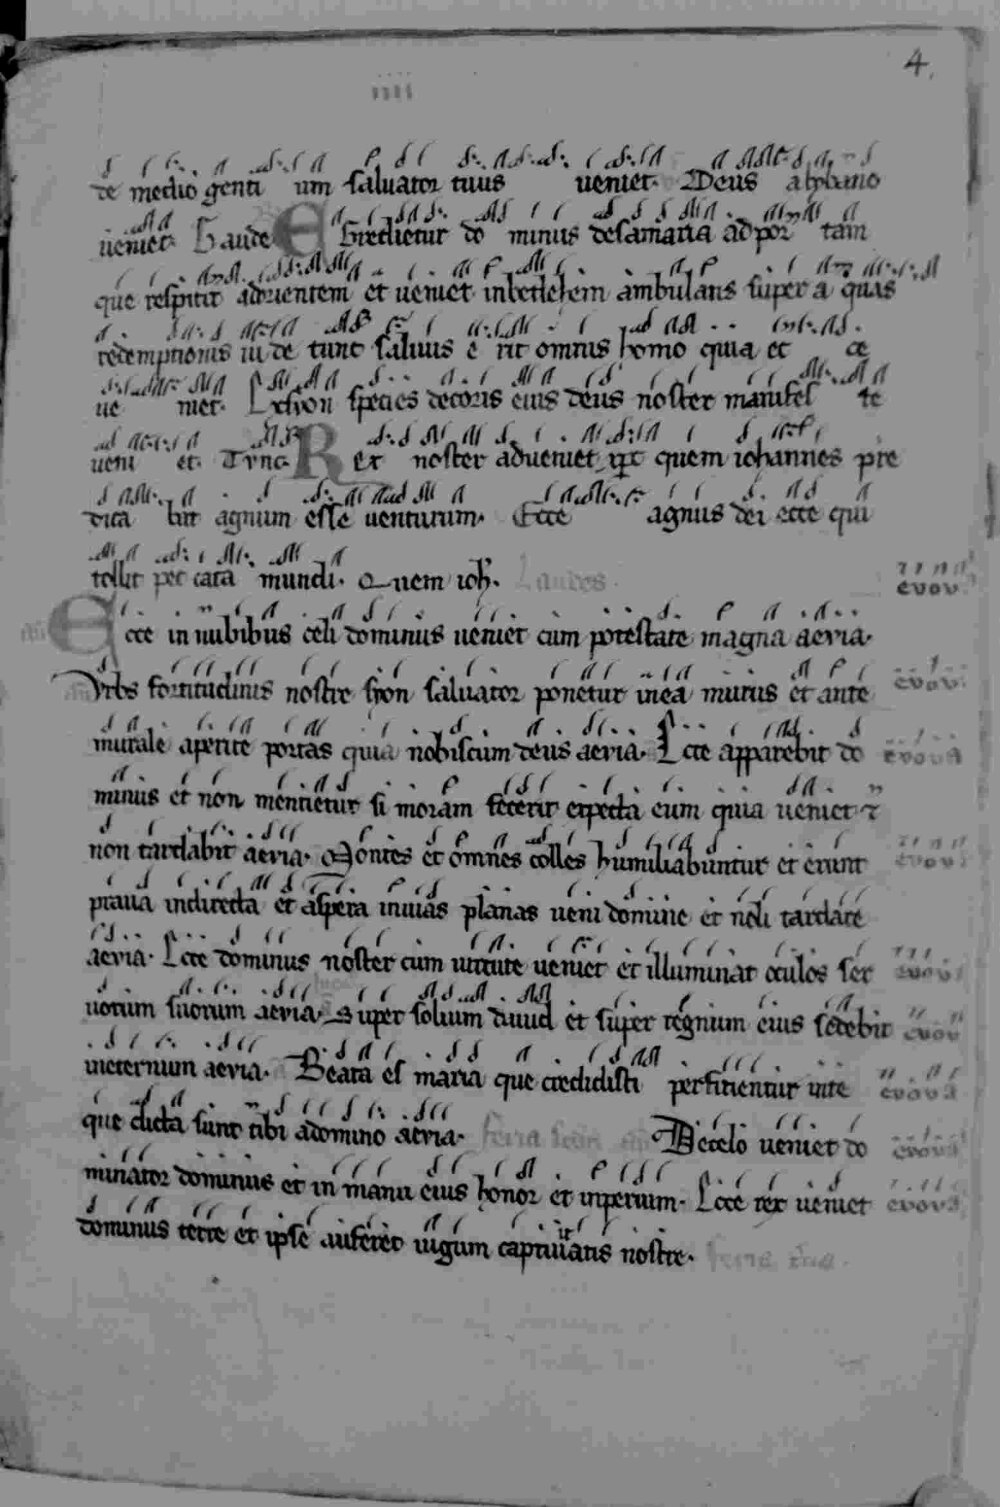 4.
iiii
de medio genti um saluator tuus ueniet. Deus ab libano
ueniet. Gaude Egredietur do minus desamaria ad por tam
que respicit ad orientem et ueniet inbethleem ambulans super a quas
redemptionis iu de tunc saluus e rit omnis homo quia ec ce
ue niet. Exsyon species decoris eius deus noster manifes te
ueni et. Tunc. Rex noster adueniet xpc quem iohannes pre
dica bit agnum esse uenturum. Ecce agnus dei ecce qui
tollit pec cata mundi. Quem ioh. Laudes. euou
Ecce in nubibus celi dominus ueniet cum potestate magna aeuia.
Vrbs fortitudinis nostre syon saluator ponetur inea murus et ante euou
murale aperite portas quia nobiscum deus aeuia. Ecce apparebit do euoua
minus et non mentietur si moram fecerit expecta eum quia ueniet ⁊
non tardabit aeuia. Montes et omnes colles humiliabuntur et erunt euou
praua indirecta et aspera inuias planas ueni domine et noli tardare
aeuia. Ecce dominus noster cum uirtute ueniet et illuminat oculos ser euou
uorum suorum aeuia. Super solium dauid et super regnum eius sedebit euou
ineternum aeuia. Beata es maria que credidisti perficientur inte euoua
que dicta sunt tibi adomino aeuia. feria Decelo ueniet do euoua
minator dominus et in manu eius honor et inperium. Ecce rex ueniet euoua
dominus terre et ipse auferet iugum captiuitatis nostre. feria